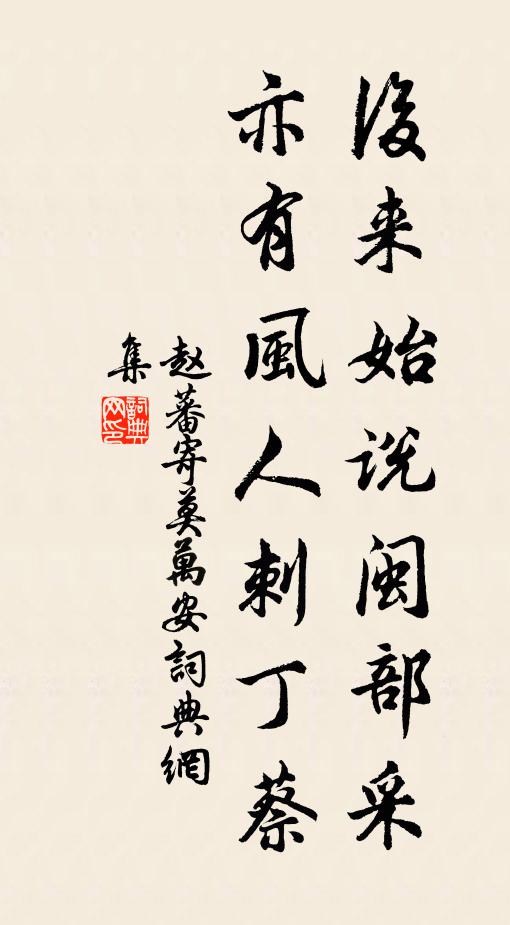 後来始说闽部采
亦有風人刺丁蔡
赵蕃寄莫萬安詞典網
集
詞典
网印